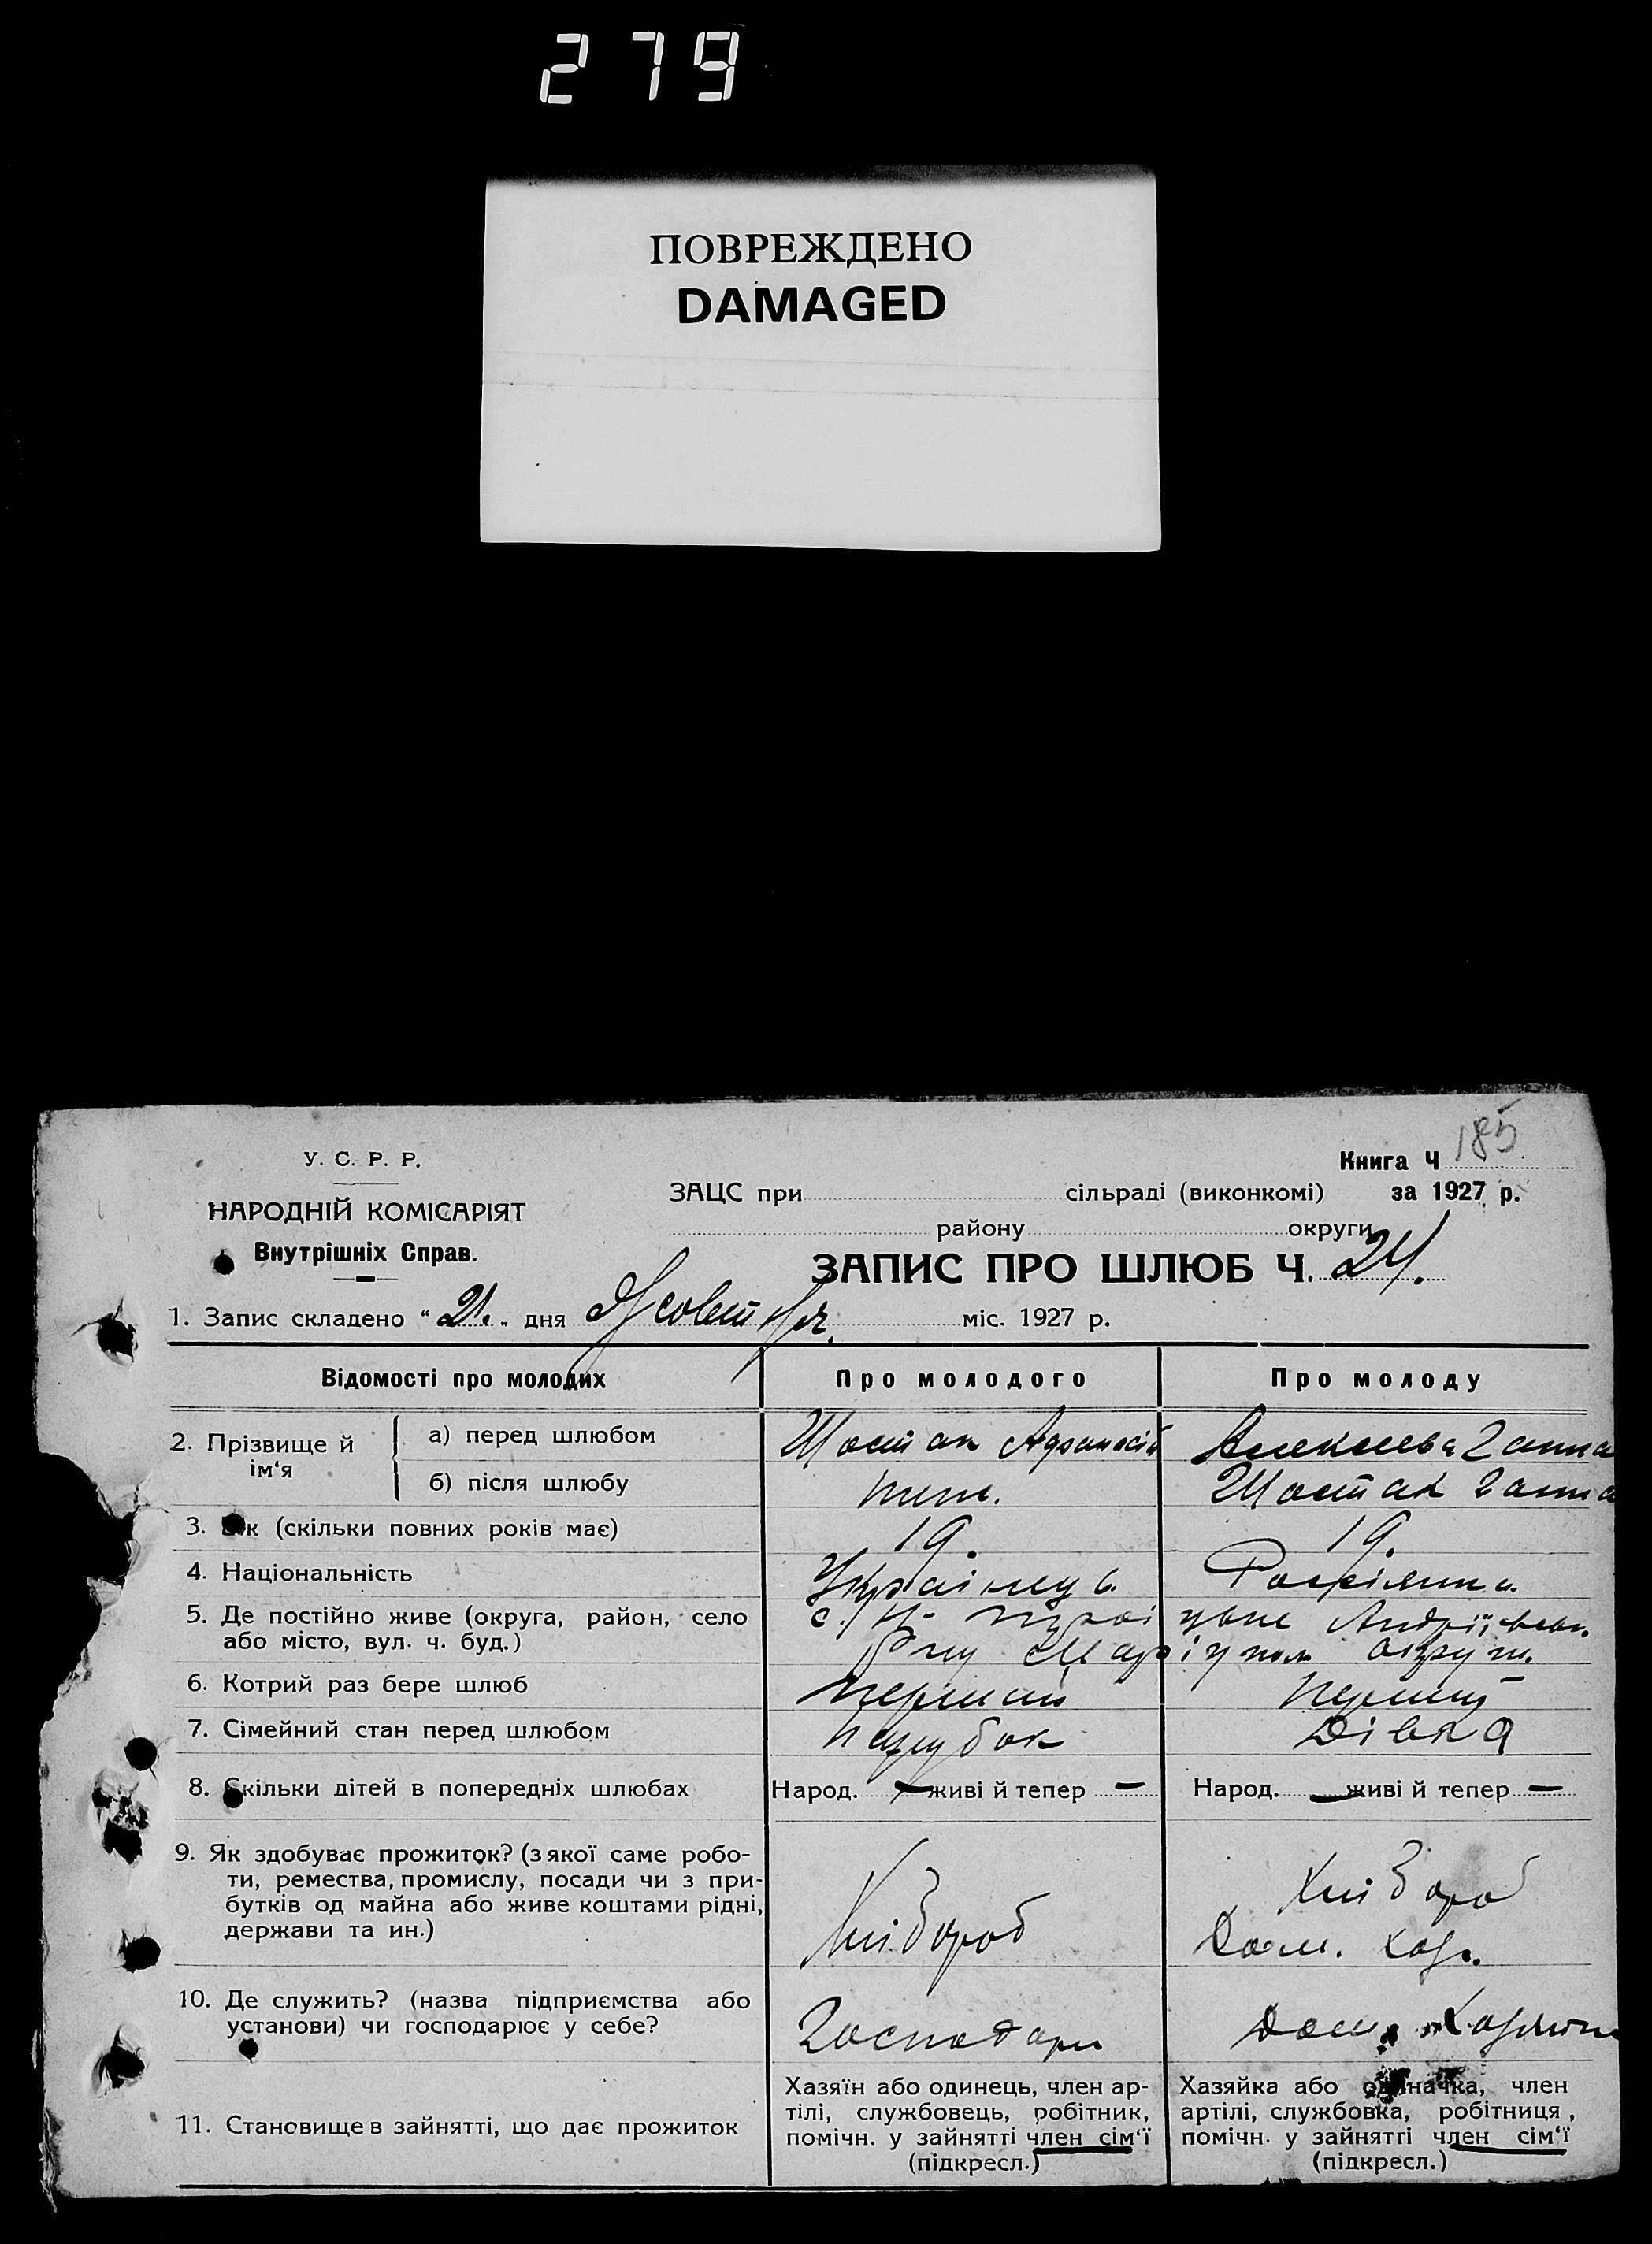 279
ПОВРЕЖДЕНО
DAMAGED
У. С. Р. Р.
НАРОДНІЙ КОМІСАРІЯТ
Внутрішніх Справ.
Книга Ч 185
ЗАЦС при сільраді (виконкомі) за 1927 р.
району округи
ЗАПИС ПРО ШЛЮБ Ч. 24.
1. Запис складено "21." дня Жовтня міс. 1927 р.
Відомості про молодих
Про молодого
Про молоду
2. Прізвище й ім'я
а) перед шлюбом
Шостак Афанасій
Алексеева Ганна
б) після шлюбу
теж.
Шостак Ганна
3. к (скільки повних років має)
19.
19.
4. Національність
Українец
Росіянка
5. Де постійно живе (округа, район, село
або місто, вул. ч. буд.)
с. Андріївськ.
р-ну Маріупол округи.
6. Котрий раз бере шлюб
перший
перший
7. Сімейний стан перед шлюбом
парубок
Дівка
8. Скільки дітей в попередніх шлюбах
Народ. — живі й тепер —
Народ. — живі й тепер —
9. Як здобуває прожиток? (з якої саме робо-
ти, ремества, промислу, посади чи з при-
бутків од майна або живе коштами рідні,
держави та ин.)
Хлібороб
Хлібороб
Дом. хоз.
10. Де служить? (назва підприємства або
установи) чи господарює у себе?
Господарь
Дом.
11. Становище в зайнятті, що дає прожиток
Хазяїн або одинець, член ар-
тілі, службовець, робітник,
помічн. у зайнятті член сім'ї
(підкресл.)
Хазяйка або одиначка, член
артілі, службовка, робітниця,
помічн. у зайнятті член сім'ї
(підкресл.)